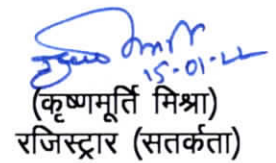 15-01-22
(कृष्णमूर्ति मिश्रा)
रजिस्ट्रार (सतर्कता)